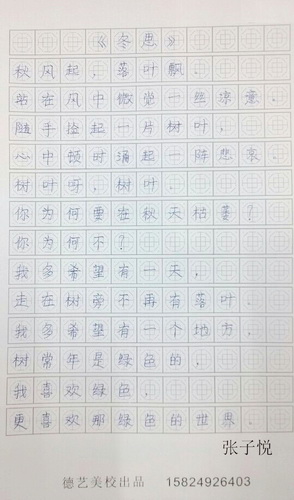 《冬思》
秋风起，落叶飘．
站在风中微觉一丝凉意．
随手捡起一片树叶，
心中顿时涌起一阵悲哀．
树叶呀，树叶．
你为何要在秋天枯萎？
你为何不？
我多希望有一天，
走在树旁不再有落叶．
我多希望有一个地方．
树常年是绿色的，
我喜欢绿色，
更喜欢那绿色的世界．
张子悦
德艺美校出品 15824926403